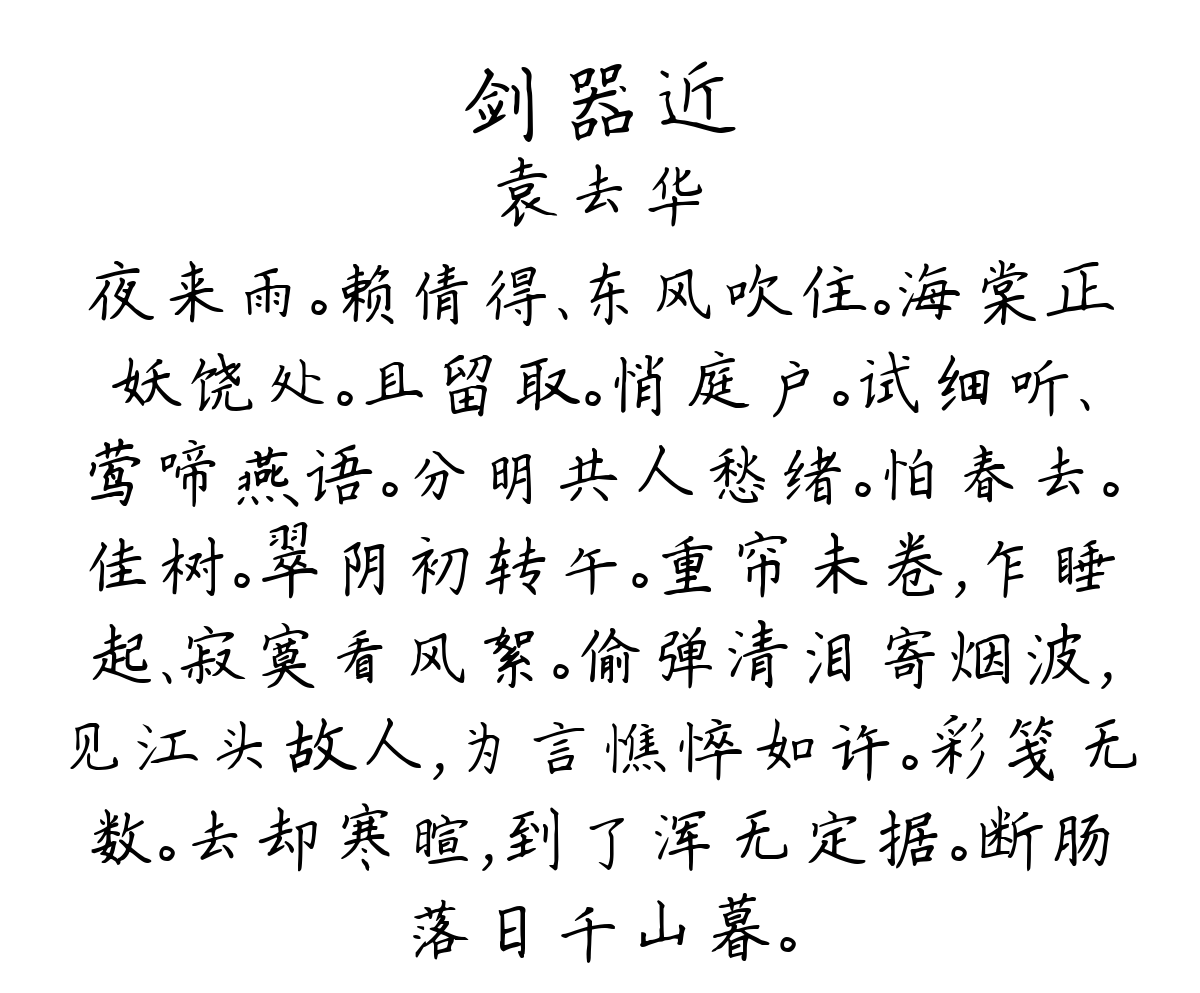 剑器近
袁去华
夜来雨。赖倩得、东风吹住。海棠正
妖饶处。且留取。悄庭户。试细听、
莺啼燕语。分明共人愁绪。怕春去。
佳树。翠阴初转午。重帘未卷,乍睡
起、寂寞看风絮。偷弹清泪寄烟波,
见江头故人,为言憔悴如许。彩笺无
数。去却寒暄,到了浑无定据。断肠
落日千山暮。